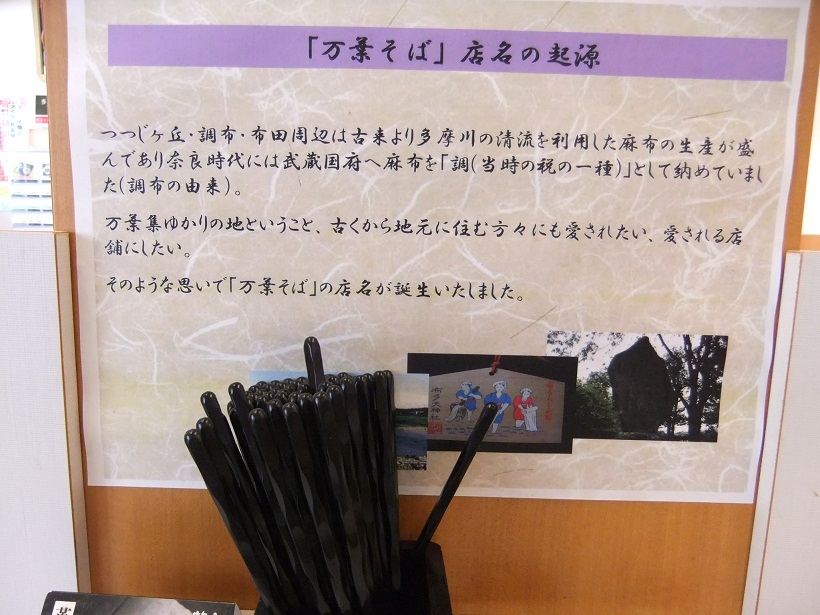 「万葉そば」店名の起源
つつじヶ丘・調布・布田周辺は古来より多摩川の清流を利用した麻布の生産が盛
んであり奈良時代には武蔵国府へ麻布を「調(当時の税の一種)」として納めていまし
た(調布の由来)。
万葉集ゆかりの地ということ、古くから地元に住む方々にも愛されたい、愛される店
舗にしたい。
そのような思いで「万葉そば」の店名が誕生いたしました。
布多天神社